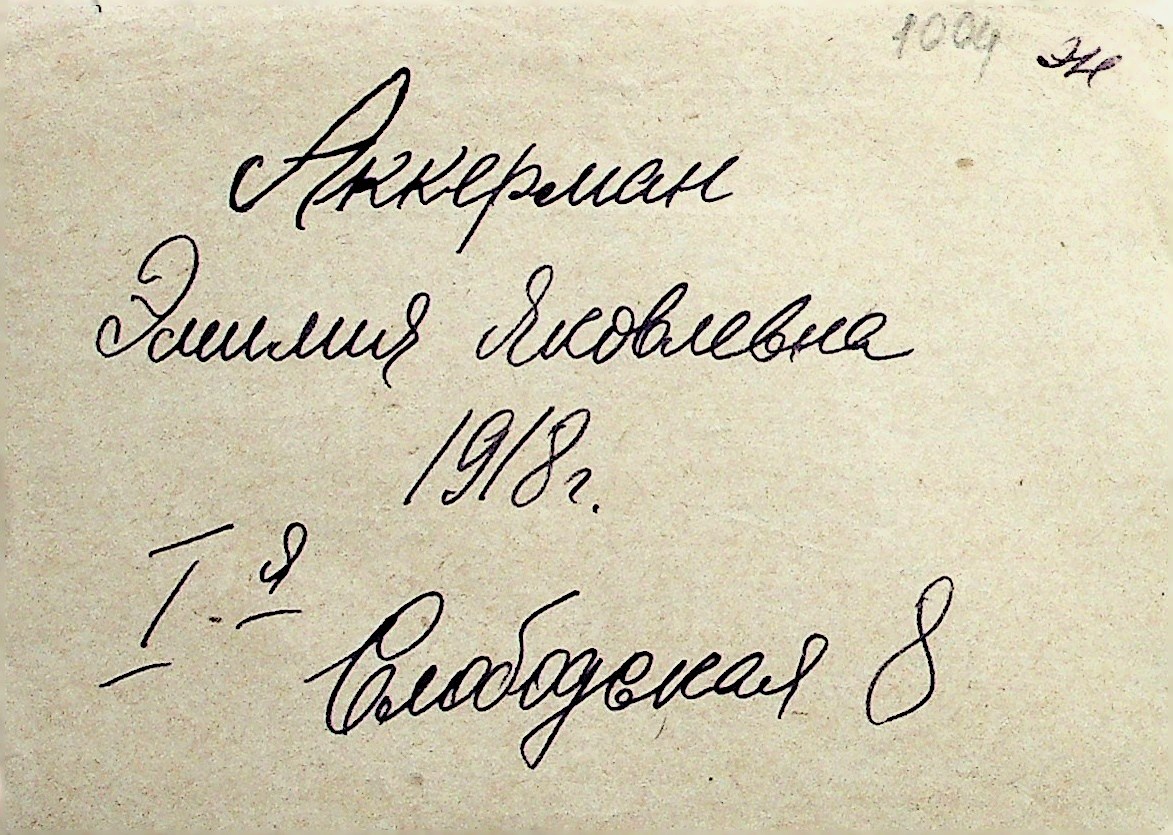 1004 эк
Аккерман
Эмилия Яковлевна
1918г.
I-я
Слободская 8